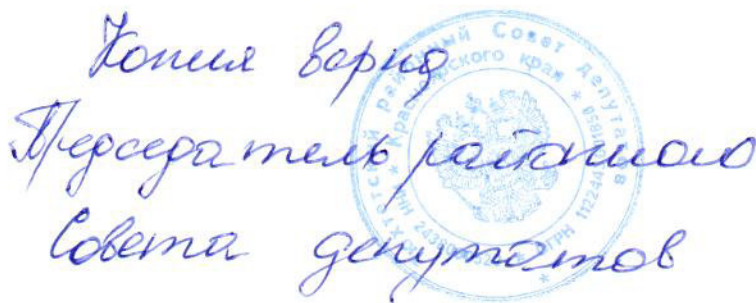 Копия верна
Председатель районного
Совета депутатов
районный Совет депутатов
Красноярского края
ИНН
ОГРН